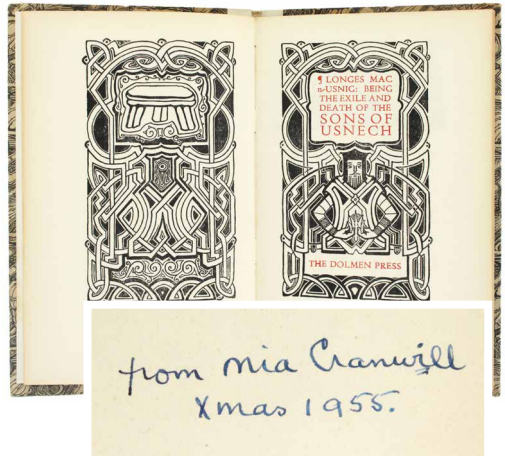 ¶ LONGES MAC
n-USNIG: BEING
THE EXILE AND
DEATH OF THE
SONS OF
USNECH
THE DOLMEN PRESS
from Mia Cranwill
Xmas 1955.